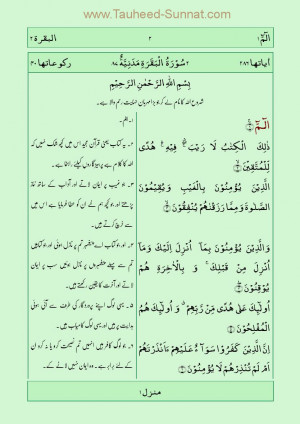 www.Tauheed-Sunnat.com
البقرة ٢
٢
الٓمّٓ ١
رکوعاتھا ٤٠
٢ سُوْرَةُ الْبَقَرَةِ مَدَنِيَّةٌ ٨٧
اٰیاتھا ٢٨٦
بِسْمِ اللّٰهِ الرَّحْمٰنِ الرَّحِيْمِ
شروع اللہ کا نام لے کر جو بڑا مہربان نہایت رحم والا ہے۔
الٓمّٓ
ذٰلِكَ الْكِتٰبُ لَا رَيْبَ ۛ فِيْهِ ۛ هُدًى
لِّلْمُتَّقِيْنَ
الَّذِيْنَ يُؤْمِنُوْنَ بِالْغَيْبِ وَيُقِيْمُوْنَ
الصَّلٰوةَ وَمِمَّا رَزَقْنٰهُمْ يُنْفِقُوْنَ
وَالَّذِيْنَ يُؤْمِنُوْنَ بِمَآ اُنْزِلَ اِلَيْكَ وَمَآ
اُنْزِلَ مِنْ قَبْلِكَ ۚ وَ بِالْاٰخِرَةِ هُمْ
يُوْقِنُوْنَ
اُولٰٓئِكَ عَلٰى هُدًى مِّنْ رَّبِّهِمْ ۗ وَ اُولٰٓئِكَ هُمُ
الْمُفْلِحُوْنَ
اِنَّ الَّذِيْنَ كَفَرُوْا سَوَآءٌ عَلَيْهِمْ ءَاَنْذَرْتَهُمْ
اَمْ لَمْ تُنْذِرْهُمْ لَا يُؤْمِنُوْنَ
١۔ الم۔
٢۔ یہ کتاب یعنی قرآن مجید اس میں کچھ شک نہیں کہ
اللہ کا کلام ہے پرہیزگاروں کیلئے راہنما ہے۔
٣۔ جو غیب پر ایمان لاتے اور آداب کے ساتھ نماز
پڑھتے اور جو کچھ ہم نے ان کو عطا فرمایا ہے اس میں
سے خرچ کرتے ہیں۔
٤۔ اور جو کتاب اے پیغمبر تم پر نازل ہوئی اور جو کتابیں
تم سے پہلے پیغمبروں پر نازل ہوئیں سب پر ایمان
لاتے اور آخرت کا یقین رکھتے ہیں۔
٥۔ یہی لوگ اپنے پروردگار کی طرف سے آئی ہوئی
ہدایت پر ہیں اور یہی لوگ کامیاب ہیں۔
٦۔ جو لوگ کافر ہیں انہیں تم نصیحت کرو یا نہ کرو ان
کے لئے برابر ہے۔ وہ ایمان نہیں لانے کے۔
منزل ١
www.Tauheed-Sunnat.com